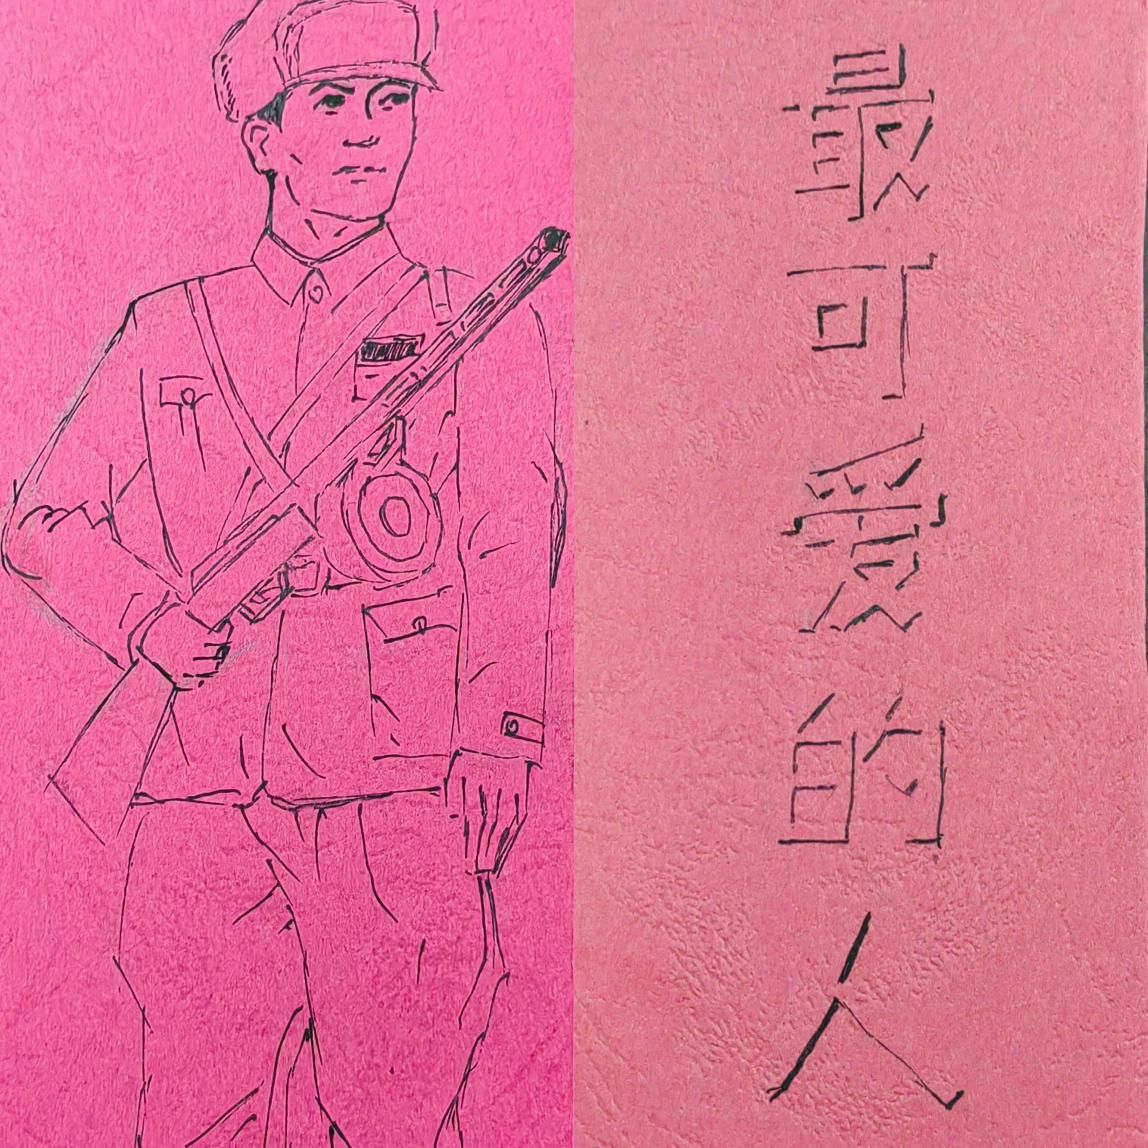 最可愛的人